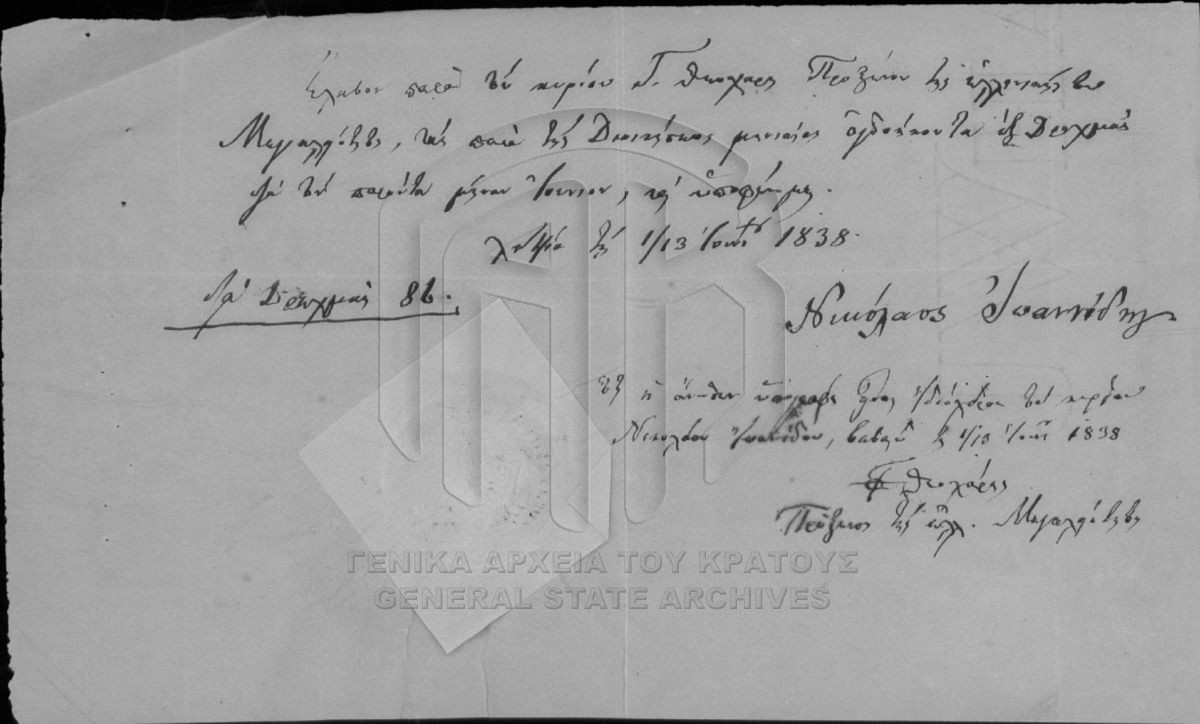 Ἔλαβον παρὰ τοῦ κυρίου Γ. Θεοχάρη Προξένου τῆς ἑλληνικῆς του
Μεγαλειότητος, τὰς παρὰ τῆς Διοικήσεως μηνιαίας ὀγδοήκοντα ἓξ Δραχμὰς
διὰ τὸν παρόντα μῆνα Ἰούνιον, καὶ ὑποφαίνομαι.
τῇ 1/13 Ἰουνίου 1838.
διὰ Δραχμὰς 86.
Νικόλαος Ἰωαννίδης
Ὅτι ἡ ἄνωθεν ὑπογραφὴ εἶναι ἰδιόχειρος τοῦ κυρίου
Νικολάου Ἰωαννίδου, βεβαιῶ τῇ 1/13 Ἰουνίου 1838
Γ Θεοχάρης
Πρόξενος τῆς ἑλλ. Μεγαλειότητος
ΓΕΝΙΚΑ ΑΡΧΕΙΑ ΤΟΥ ΚΡΑΤΟΥΣ
GENERAL STATE ARCHIVES